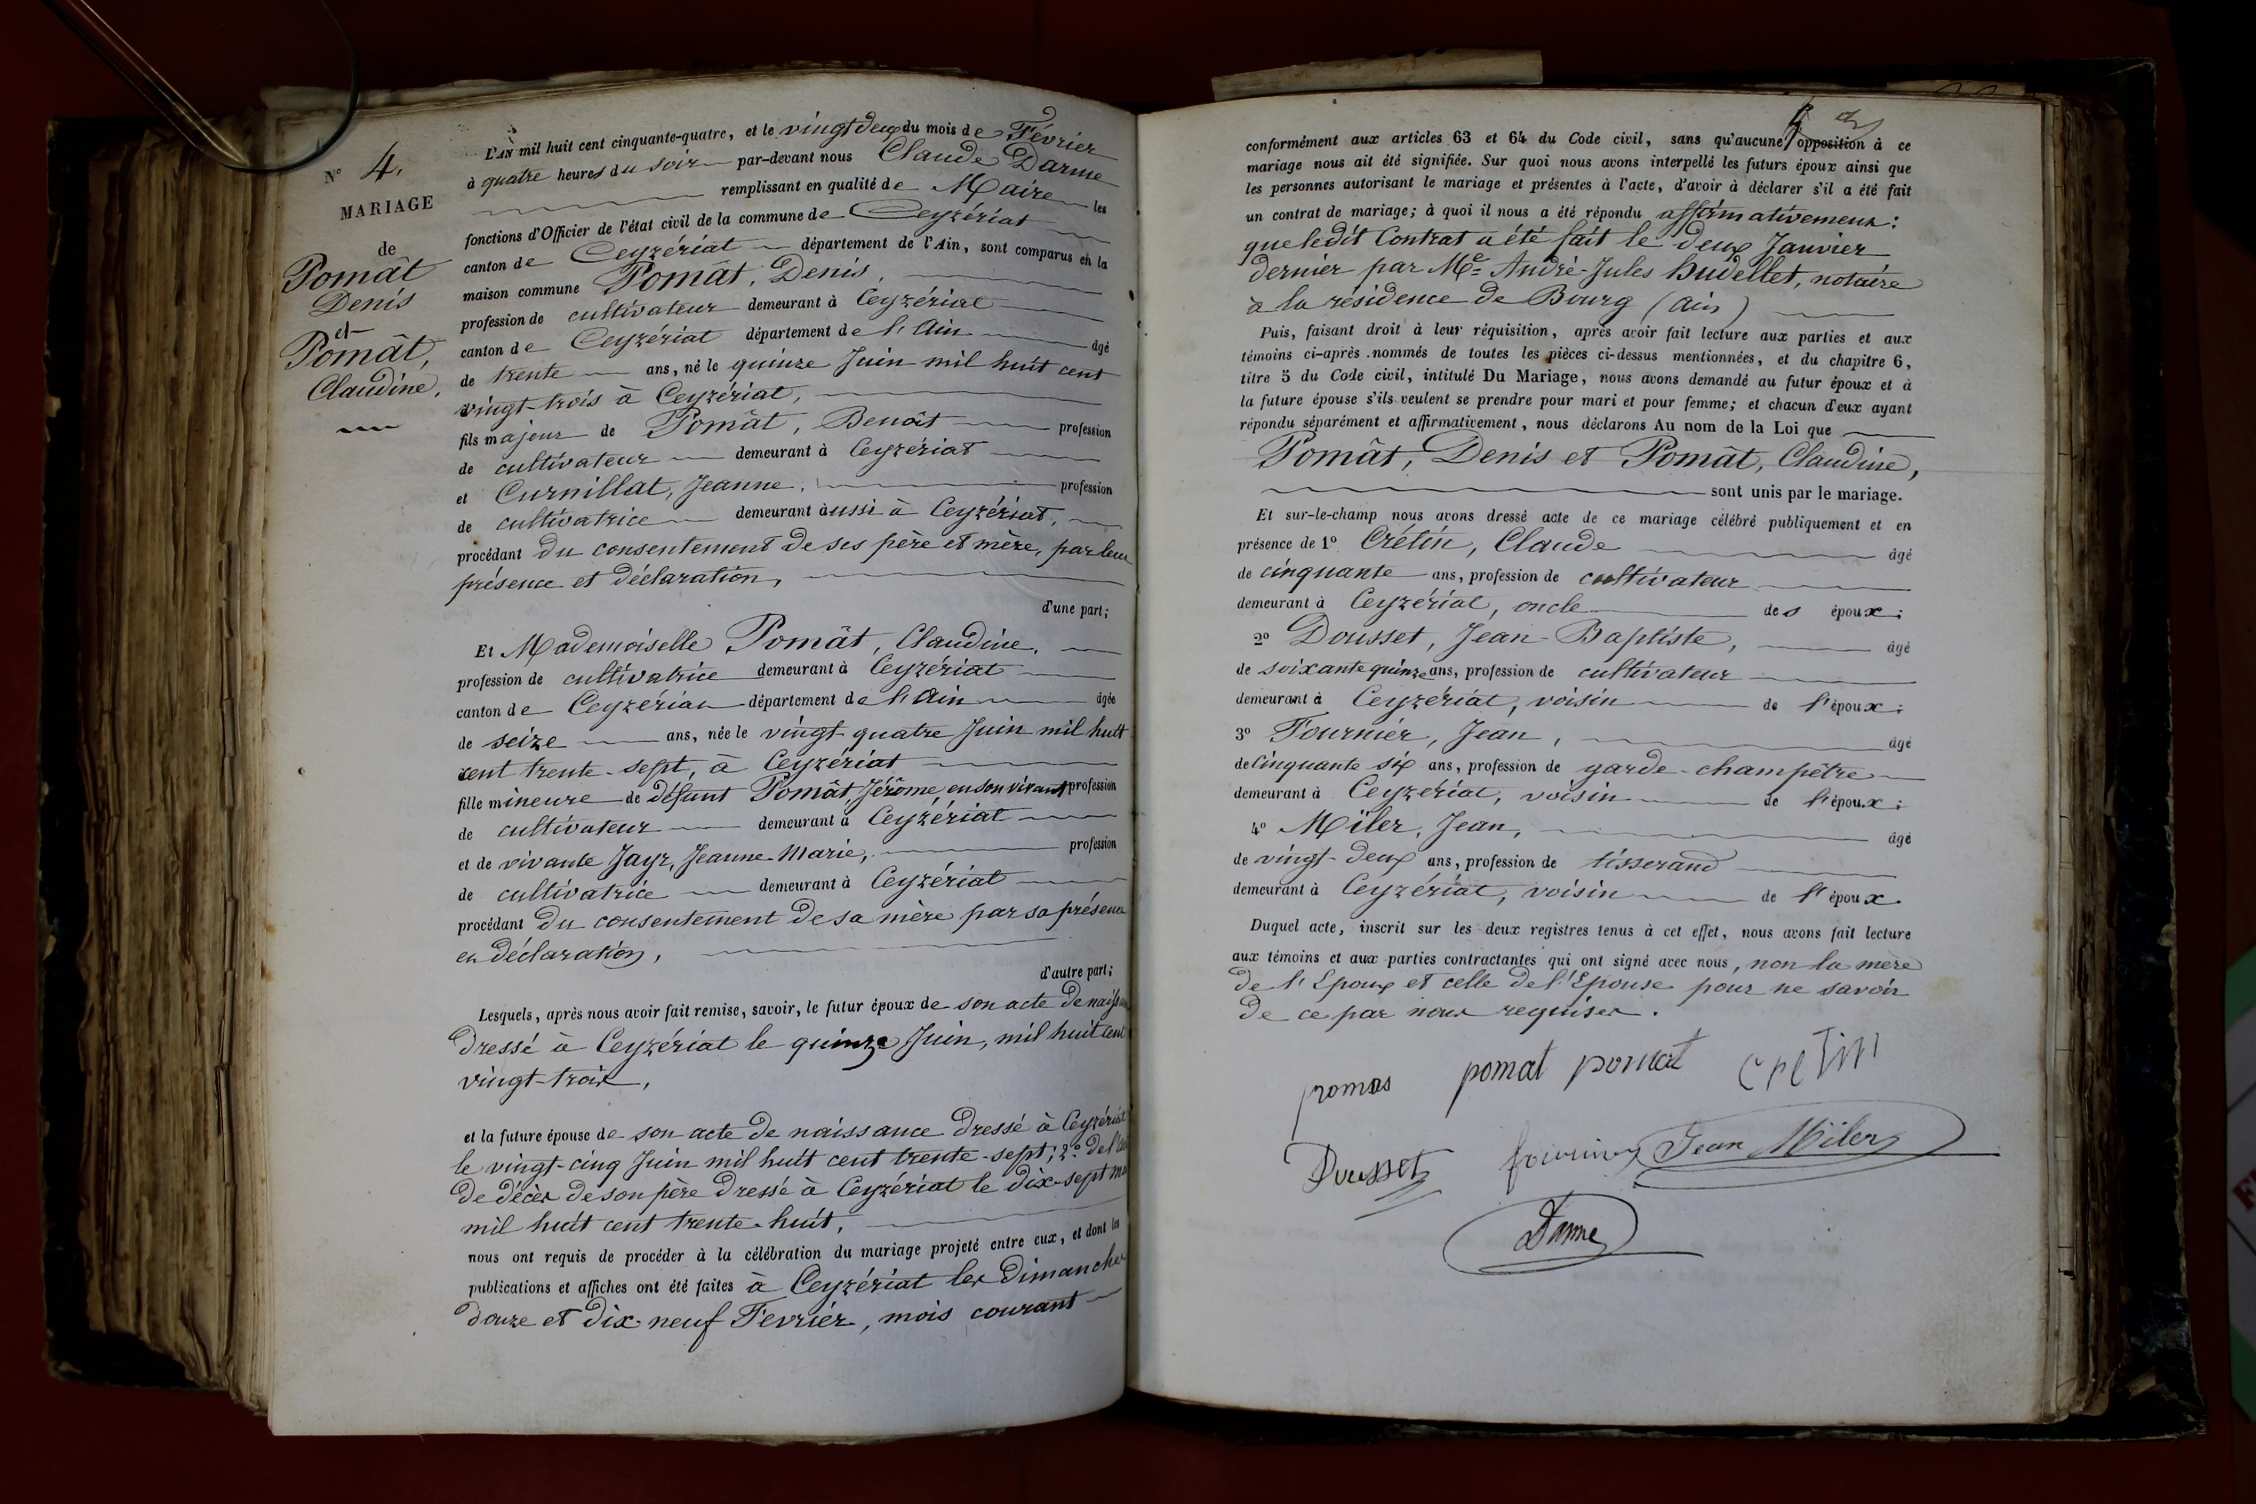 N° 4.
MARIAGE
de
Pomât
Denis
et
Pomât,
Claudine.
L'AN mil huit cent cinquante-quatre, et le vingt deux du mois de Février
à quatre heures du soir par-devant nous Claude Darme
remplissant en qualité de Maire les
fonctions d'Officier de l'état civil de la commune de Ceyzériat
canton de Ceyzériat département de l'Ain, sont comparus en la
maison commune Pomât, Denis,
profession de cultivateur demeurant à Ceyzériat
canton de Ceyzériat département de l'Ain âgé
de trente ans, né le quinze Juin mil huit cent
vingt-trois à Ceyzériat,
fils majeur de Pomât, Benoît profession
de cultivateur demeurant à Ceyzériat
et Curnillat, Jeanne, profession
de cultivatrice demeurant aussi à Ceyzériat,
procédant du consentement de ses père et mère, par leur
présence et déclaration,
d'une part;
Et Mademoiselle Pomât, Claudine,
profession de cultivatrice demeurant à Ceyzériat
canton de Ceyzériat département de l'Ain âgée
de seize ans, née le vingt-quatre Juin mil huit
cent trente-sept, à Ceyzériat
fille mineure de défunt Pomât, Jérôme, en son vivant profession
de cultivateur demeurant à Ceyzériat
et de vivante Jayr, Jeanne-Marie, profession
de cultivatrice demeurant à Ceyzériat
procédant du consentement de sa mère par sa présence
et déclaration,
d'autre part;
Lesquels, après nous avoir fait remise, savoir, le futur époux de son acte de
dressé à Ceyzériat le quinze Juin, mil huit cent
vingt-trois,
et la future épouse de son acte de naissance dressé à Ceyzériat
le vingt-cinq Juin mil huit cent trente-sept; 2° de
de décès de son père dressé à Ceyzériat le dix-sept
mil huit cent trente-huit,
nous ont requis de procéder à la célébration du mariage projeté entre eux, et dont les
publications et affiches ont été faites à Ceyzériat les dimanches
douze et dix-neuf Février, mois courant
conformément aux articles 63 et 64 du Code civil, sans qu'aucune opposition à ce
mariage nous ait été signifiée. Sur quoi nous avons interpellé les futurs époux ainsi que
les personnes autorisant le mariage et présentes à l'acte, d'avoir à déclarer s'il a été fait
un contrat de mariage; à quoi il nous a été répondu affirmativement:
que ledit Contrat a été fait le deux Janvier
dernier par Me André-Jules Hudellet, notaire
à la résidence de Bourg (Ain)
Puis, faisant droit à leur réquisition, après avoir fait lecture aux parties et aux
témoins ci-après nommés de toutes les pièces ci-dessus mentionnées, et du chapitre 6,
titre 5 du Code civil, intitulé Du Mariage, nous avons demandé au futur époux et à
la future épouse s'ils veulent se prendre pour mari et pour femme; et chacun d'eux ayant
répondu séparément et affirmativement, nous déclarons Au nom de la Loi que
Pomât, Denis et Pomât, Claudine,
sont unis par le mariage.
Et sur-le-champ nous avons dressé acte de ce mariage célébré publiquement et en
présence de 1° Crétin, Claude âgé
de cinquante ans, profession de cultivateur
demeurant à Ceyzériat, oncle des époux;
2° Dousset, Jean-Baptiste, âgé
de soixante quinze ans, profession de cultivateur
demeurant à Ceyzériat, voisin de l'époux;
3° Fournier, Jean, âgé
de cinquante six ans, profession de garde-champêtre
demeurant à Ceyzériat, voisin de l'époux;
4° Miler, Jean, âgé
de vingt-deux ans, profession de tisserand
demeurant à Ceyzériat, voisin de l'époux.
Duquel acte, inscrit sur les deux registres tenus à cet effet, nous avons fait lecture
aux témoins et aux parties contractantes qui ont signé avec nous, non la mère
de l'Epoux et celle de l'Epouse pour ne savoir
de ce par nous requises.
pomat pomat cretin
Dousset fournier Jean Miler
Darme